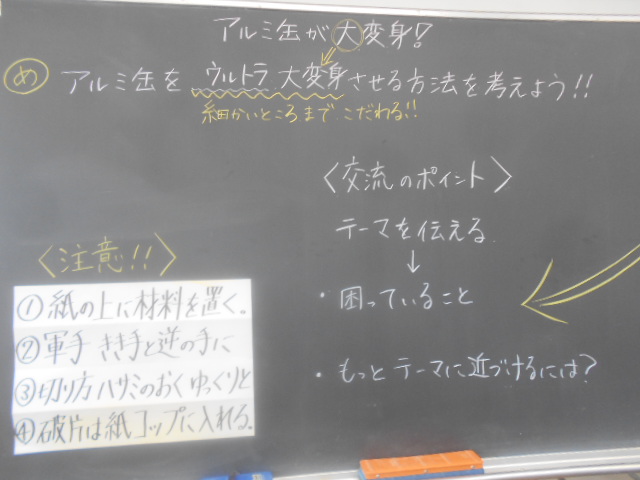 アルミ缶が大変身!
め アルミ缶をウルトラ大変身させる方法を考えよう!!
細かいところまでこだわる!!
〈交流のポイント〉
テーマを伝える
↓
・困っていること
・もっとテーマに近づけるには?
〈注意!!〉
①紙の上に材料を置く。
②軍手 きき手と逆の手に
③切り方 ハサミのおく ゆっくりと
④破片は紙コップに入れる。